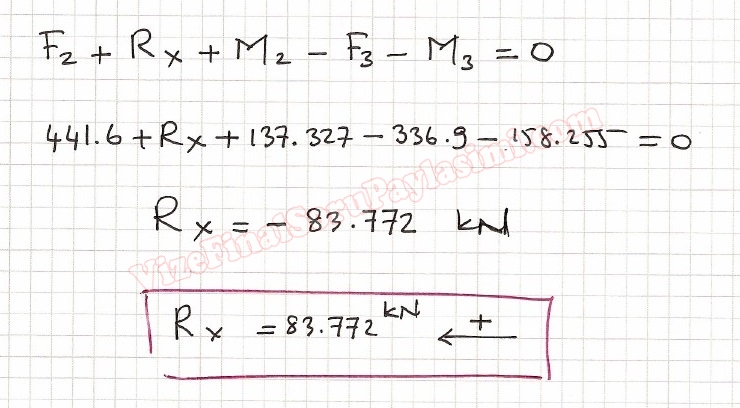 F₂ + Rx + M₂ - F₃ - M₃ = 0
441.6 + Rx + 137.327 - 336.9 - 158.255 = 0
Rx = - 83.772 kN
Rx = 83.772 kN ←+
VizeFinalSoruPaylasimi.com